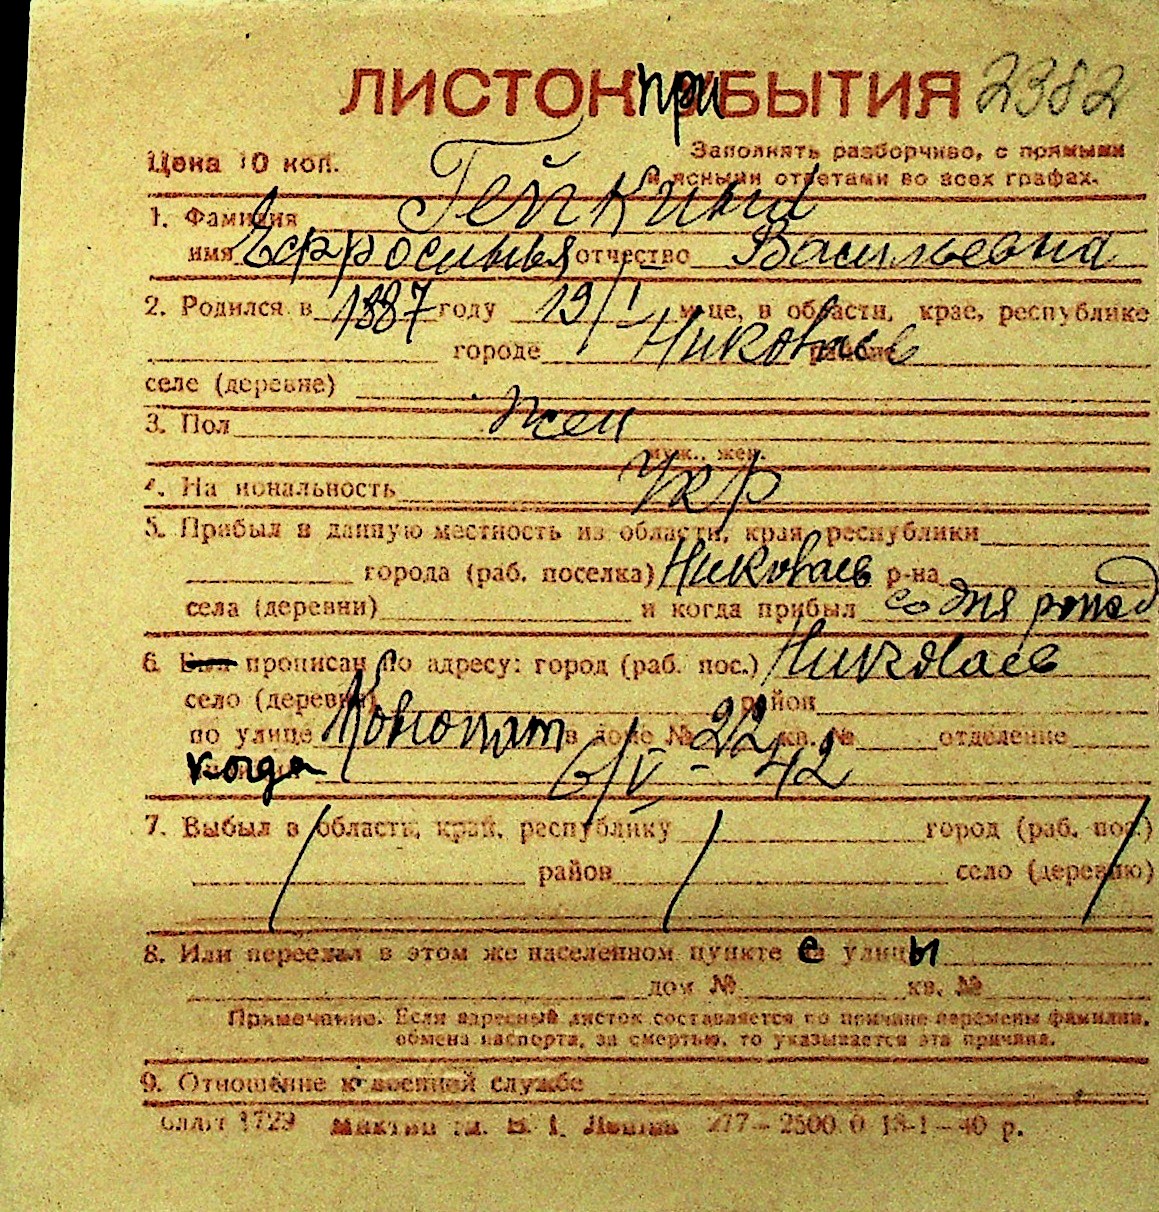 ЛИСТОК ПРИБЫТИЯ 2382
Цена 10 коп.
Заполнять разборчиво, с прямыми
и ясными ответами во всех графах.
1. Фамилия
имя Ефросинья отчество Васильевна
2. Родился в 1887 году 19/I м-це, в области, крае, республике
городе Николаев районе
селе (деревне)
3. Пол жен
муж., жен.
4. Национальность Укр
5. Прибыл в данную местность из области, края, республики
города (раб. поселка) Николаев р-на
села (деревни) и когда прибыл со дня рожд
6. Был прописан по адресу: город (раб. пос.) Николаев
село (деревня) район
по улице в доме № 22 кв. № отделение
когда 6/V - 42
7. Выбыл в область, край, республику город (раб. пос.)
район село (деревню)
8. Или переехал в этом же населенном пункте с улицы
дом № кв. №
Примечание. Если адресный листок составляется по причине перемены фамилии,
обмена паспорта, за смертью, то указывается эта причина.
9. Отношение к военной службе
1729 277 — 2500 0 13-1-40 р.